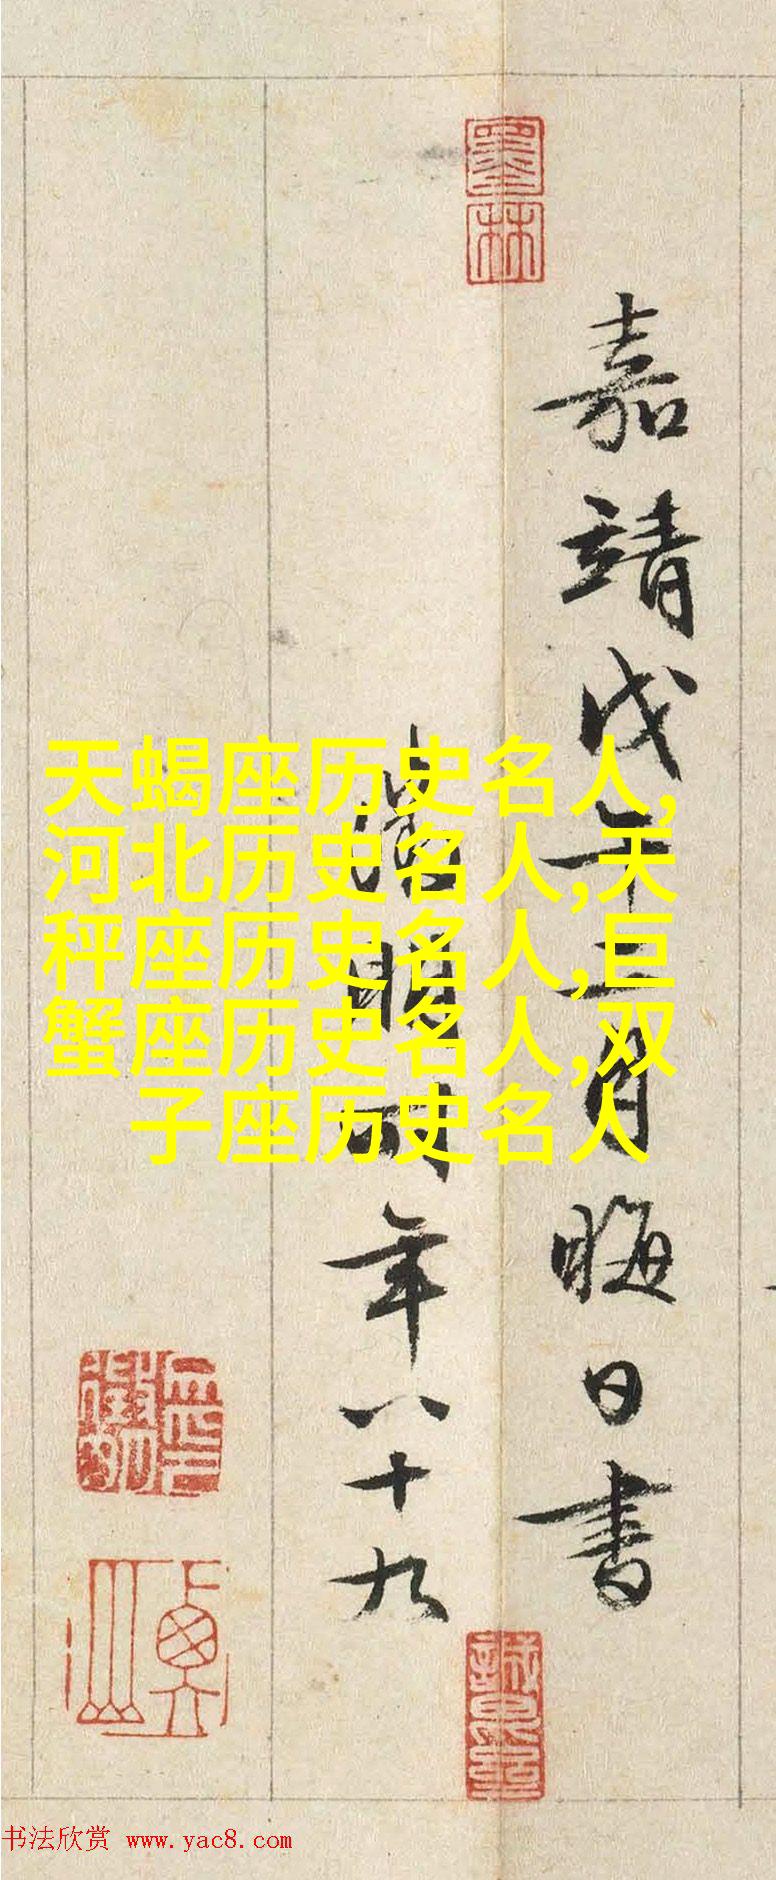 墨林
嘉靖戊午二月晦日書
徵明時年八十九
天蝎座历史名人,
河北历史名人,天
秤座历史名人,巨
蟹座历史名人,双
子座历史名人
书法欣赏 www.yac8.com